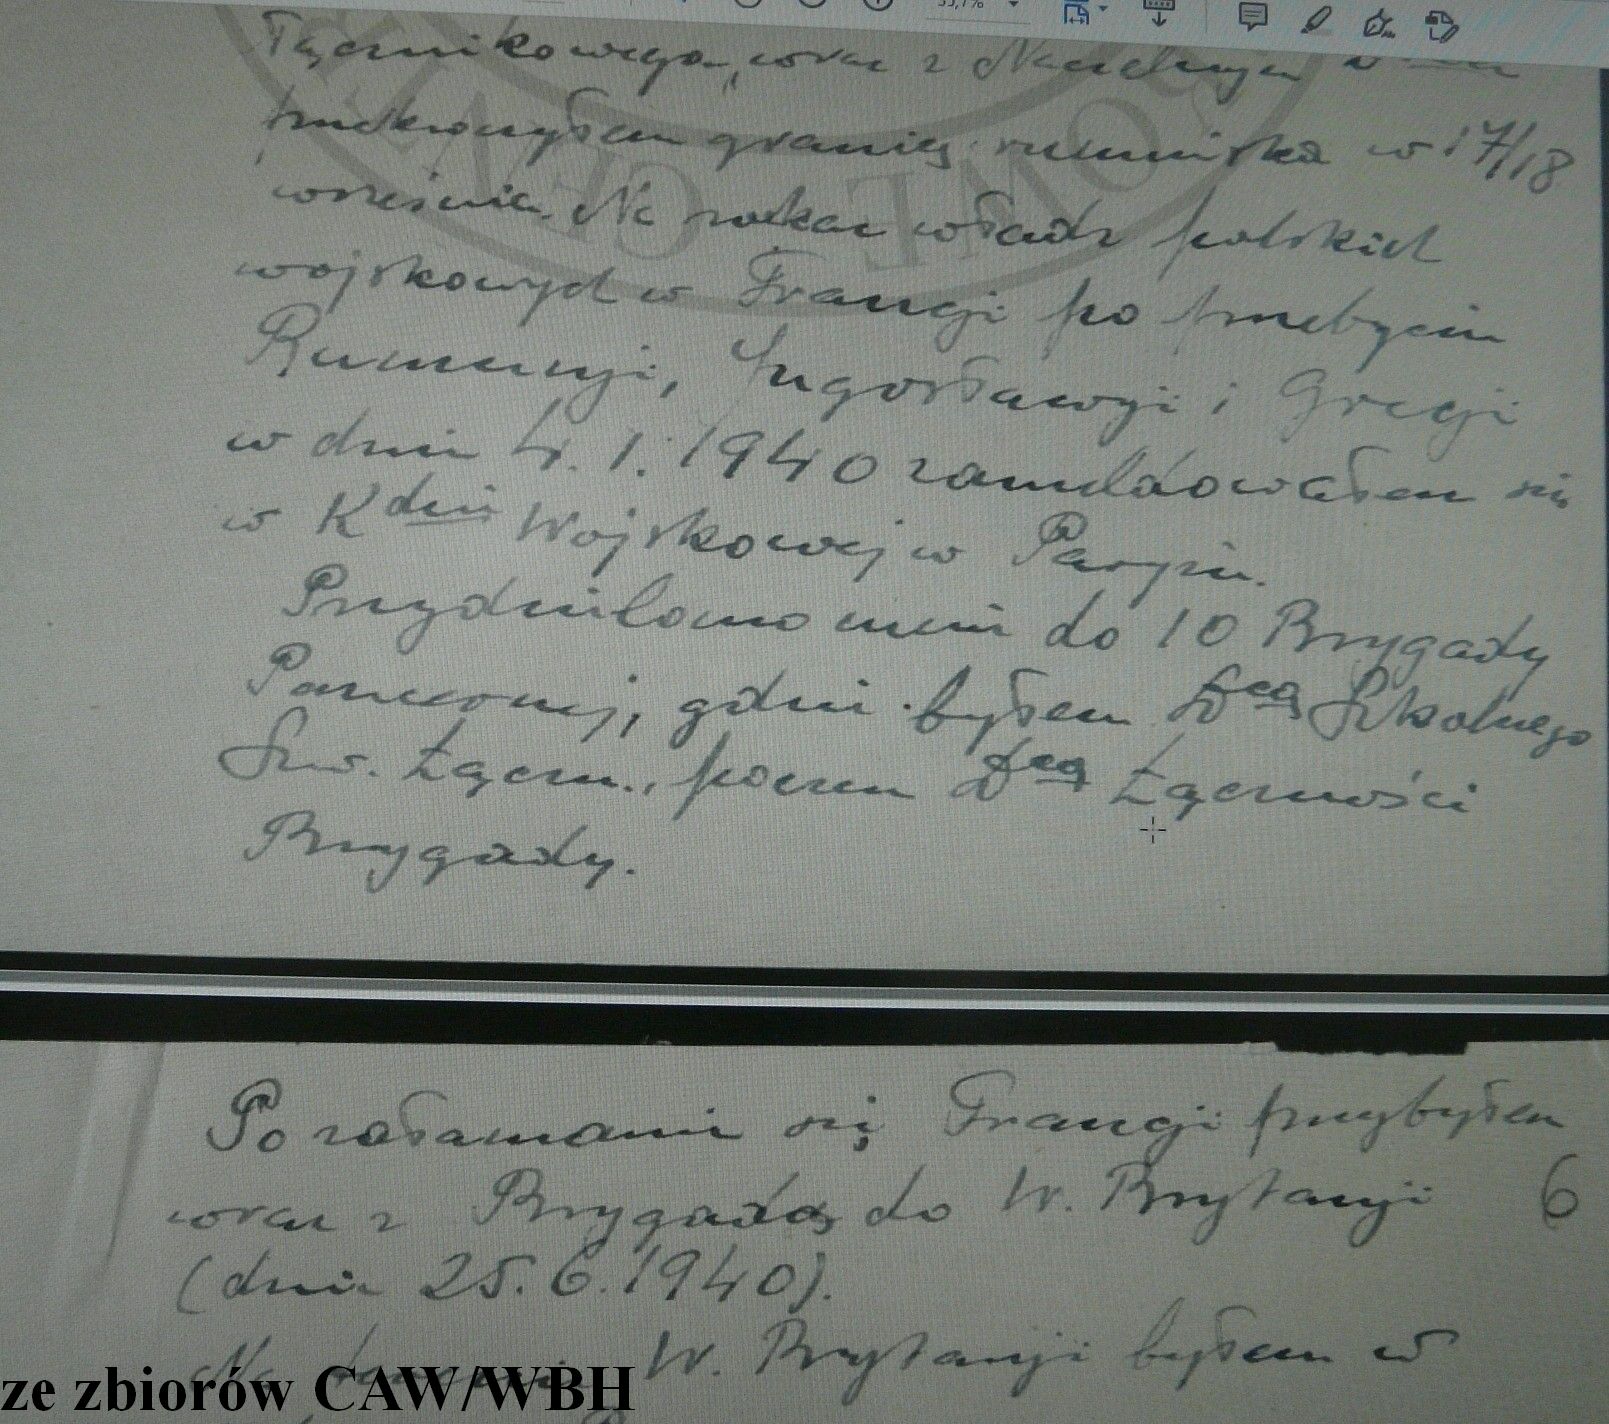 Łącznikowego, wraz z Naczelnym
przekroczyłem granicę rumuńską w 17/18
września. Na rozkaz władz polskich
wojskowych w Francji po przebyciu
Rumunji, Jugosławji i Grecji
w dniu 4.1.1940 zameldowałem się
w Kdzie Wojskowej w Paryżu.
Przydzielono mnie do 10 Brygady
Pancernej, gdzie byłem Dcą Szkolnego
Szw. Łączn., poczem Dcą Łączności
Brygady.
Po załamaniu się Francji przybyłem
wraz z Brygadą do W. Brytanji 6
(dnia 25.6.1940).
Na terenie W. Brytanji byłem w
ze zbiorów CAW/WBH